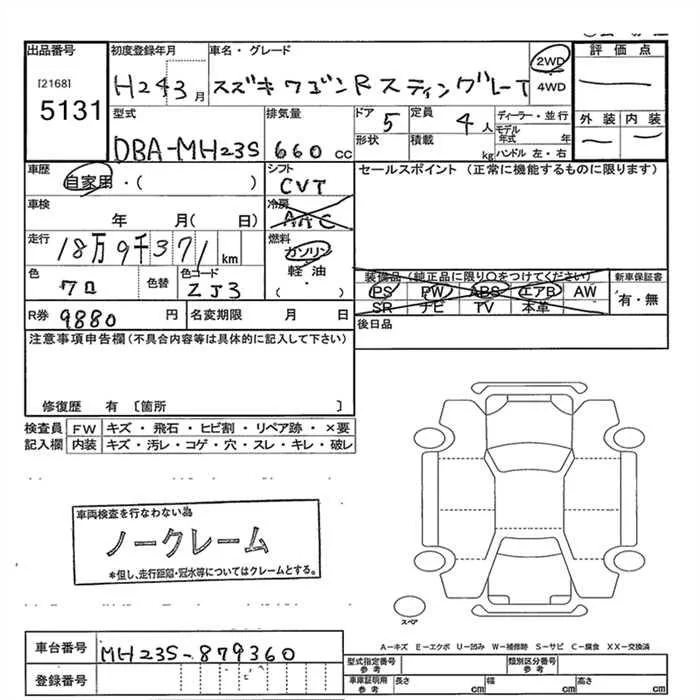 出品番号 初度登録年月 車名・グレード 評価点
[2168] 5131 H24 3月 スズキ ワゴンR スティングレーT 2WD 4WD
外装 内装
型式 排気量 ドア 5 定員 4人 ディーラー・並行
DBA-MH23S 660cc 形状 積載 kg モデル年式 年 ハンドル 左・右
車歴 シフト セールスポイント (正常に機能するものに限ります)
自家用・( ) CVT
車検 冷房
年 月( 日) AAC
走行 18万9千371km 燃料 ガソリン
軽油
( )
色 クロ 色替 色コード ZJ3
装備品(純正品に限り○をつけてください) 新車保証書
PS PW ABS エアB AW 有・無
SR ナビ TV 本革
R券 9880円 名変期限 月 日 後日品
注意事項申告欄(不具合内容等は具体的に記入して下さい)
修復歴 有 〔箇所 〕
検査員 FW キズ・飛石・ヒビ割・リペア跡・×要
記入欄 内装 キズ・汚レ・コゲ・穴・スレ・キレ・破レ
車両検査を行なわない為
ノークレーム
*但し、走行距離・冠水等についてはクレームとする。
スペア
A-キズ E-エクボ U-凹み W-補修跡 S-サビ C-腐食 XX-交換済
車台番号 MH23S-879360 型式指定番号 参考 類別区分番号 参考
登録番号 車庫証明用 参考 長さ cm 幅 cm 高さ cm